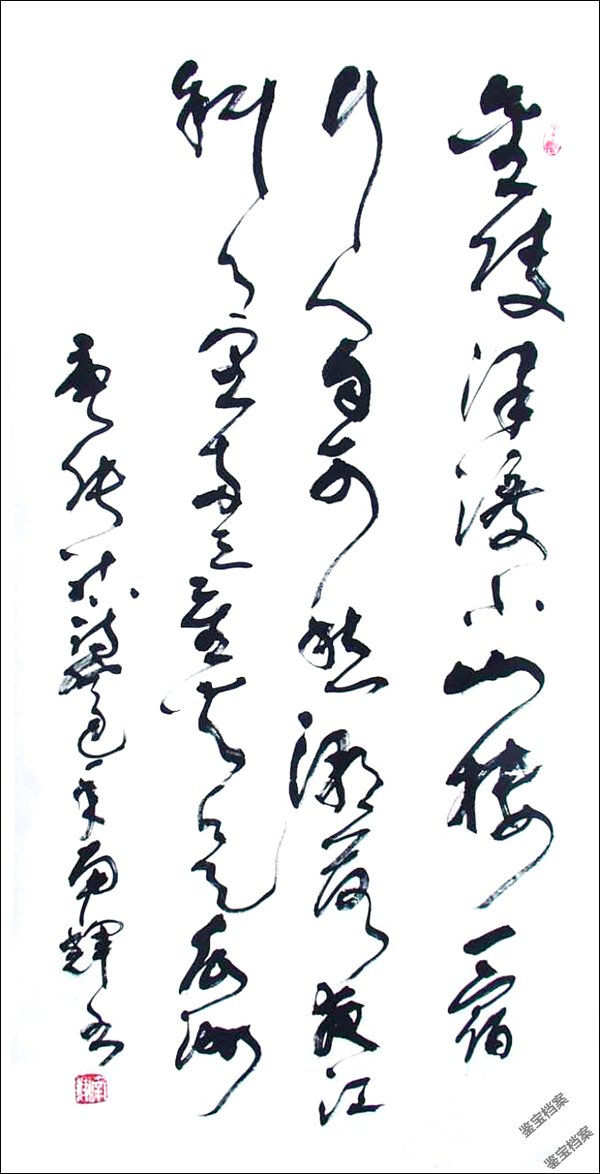 金陵津渡小山楼一宿
行人自可愁潮落夜江
斜月里两三星火是瓜洲
唐张祜诗
辉书
鉴宝档案
鉴宝档案